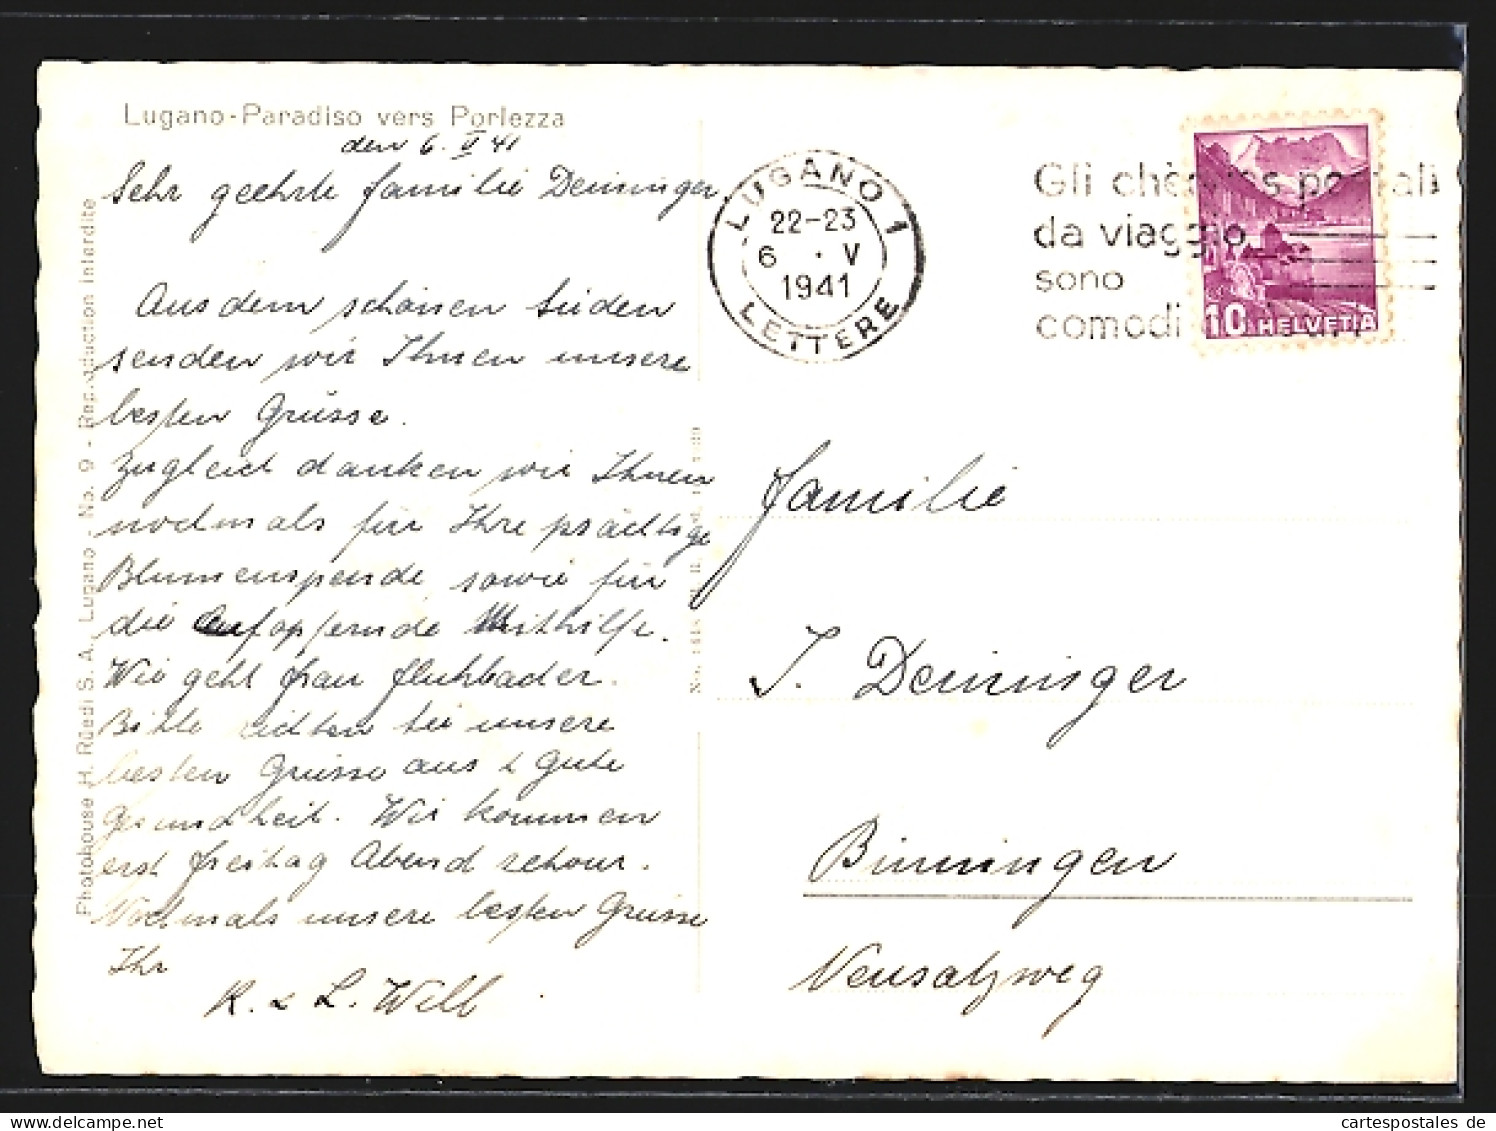 Lugano-Paradiso vers Porlezza
den 6. V 41
Sehr geehrte Familie Denninger,
Aus dem schönen Süden
senden wir Ihnen unsere
besten Grüsse.
Zugleich danken wir Ihnen
nochmals für Ihre prächtige
Blumenspende sowie für
die aufopfernde Mithilfe.
Wie geht Frau
Bitte richten Sie unsere
besten Grüsse aus & gute
Gesundheit. Wir kommen
erst Freitag Abend retour.
Nochmals unsere besten Grüsse
Ihr
K. & L. Will
Photohouse H. Rüedi S. A., Lugano - No. 9 - Reproduction interdite
LUGANO 1
22-23
6 . V
1941
LETTERE
Gli chèques postali
da viaggio
sono
comodi
10 HELVETIA
Familie
J. Denninger
Binningen
Neusatzweg
cartespostales de